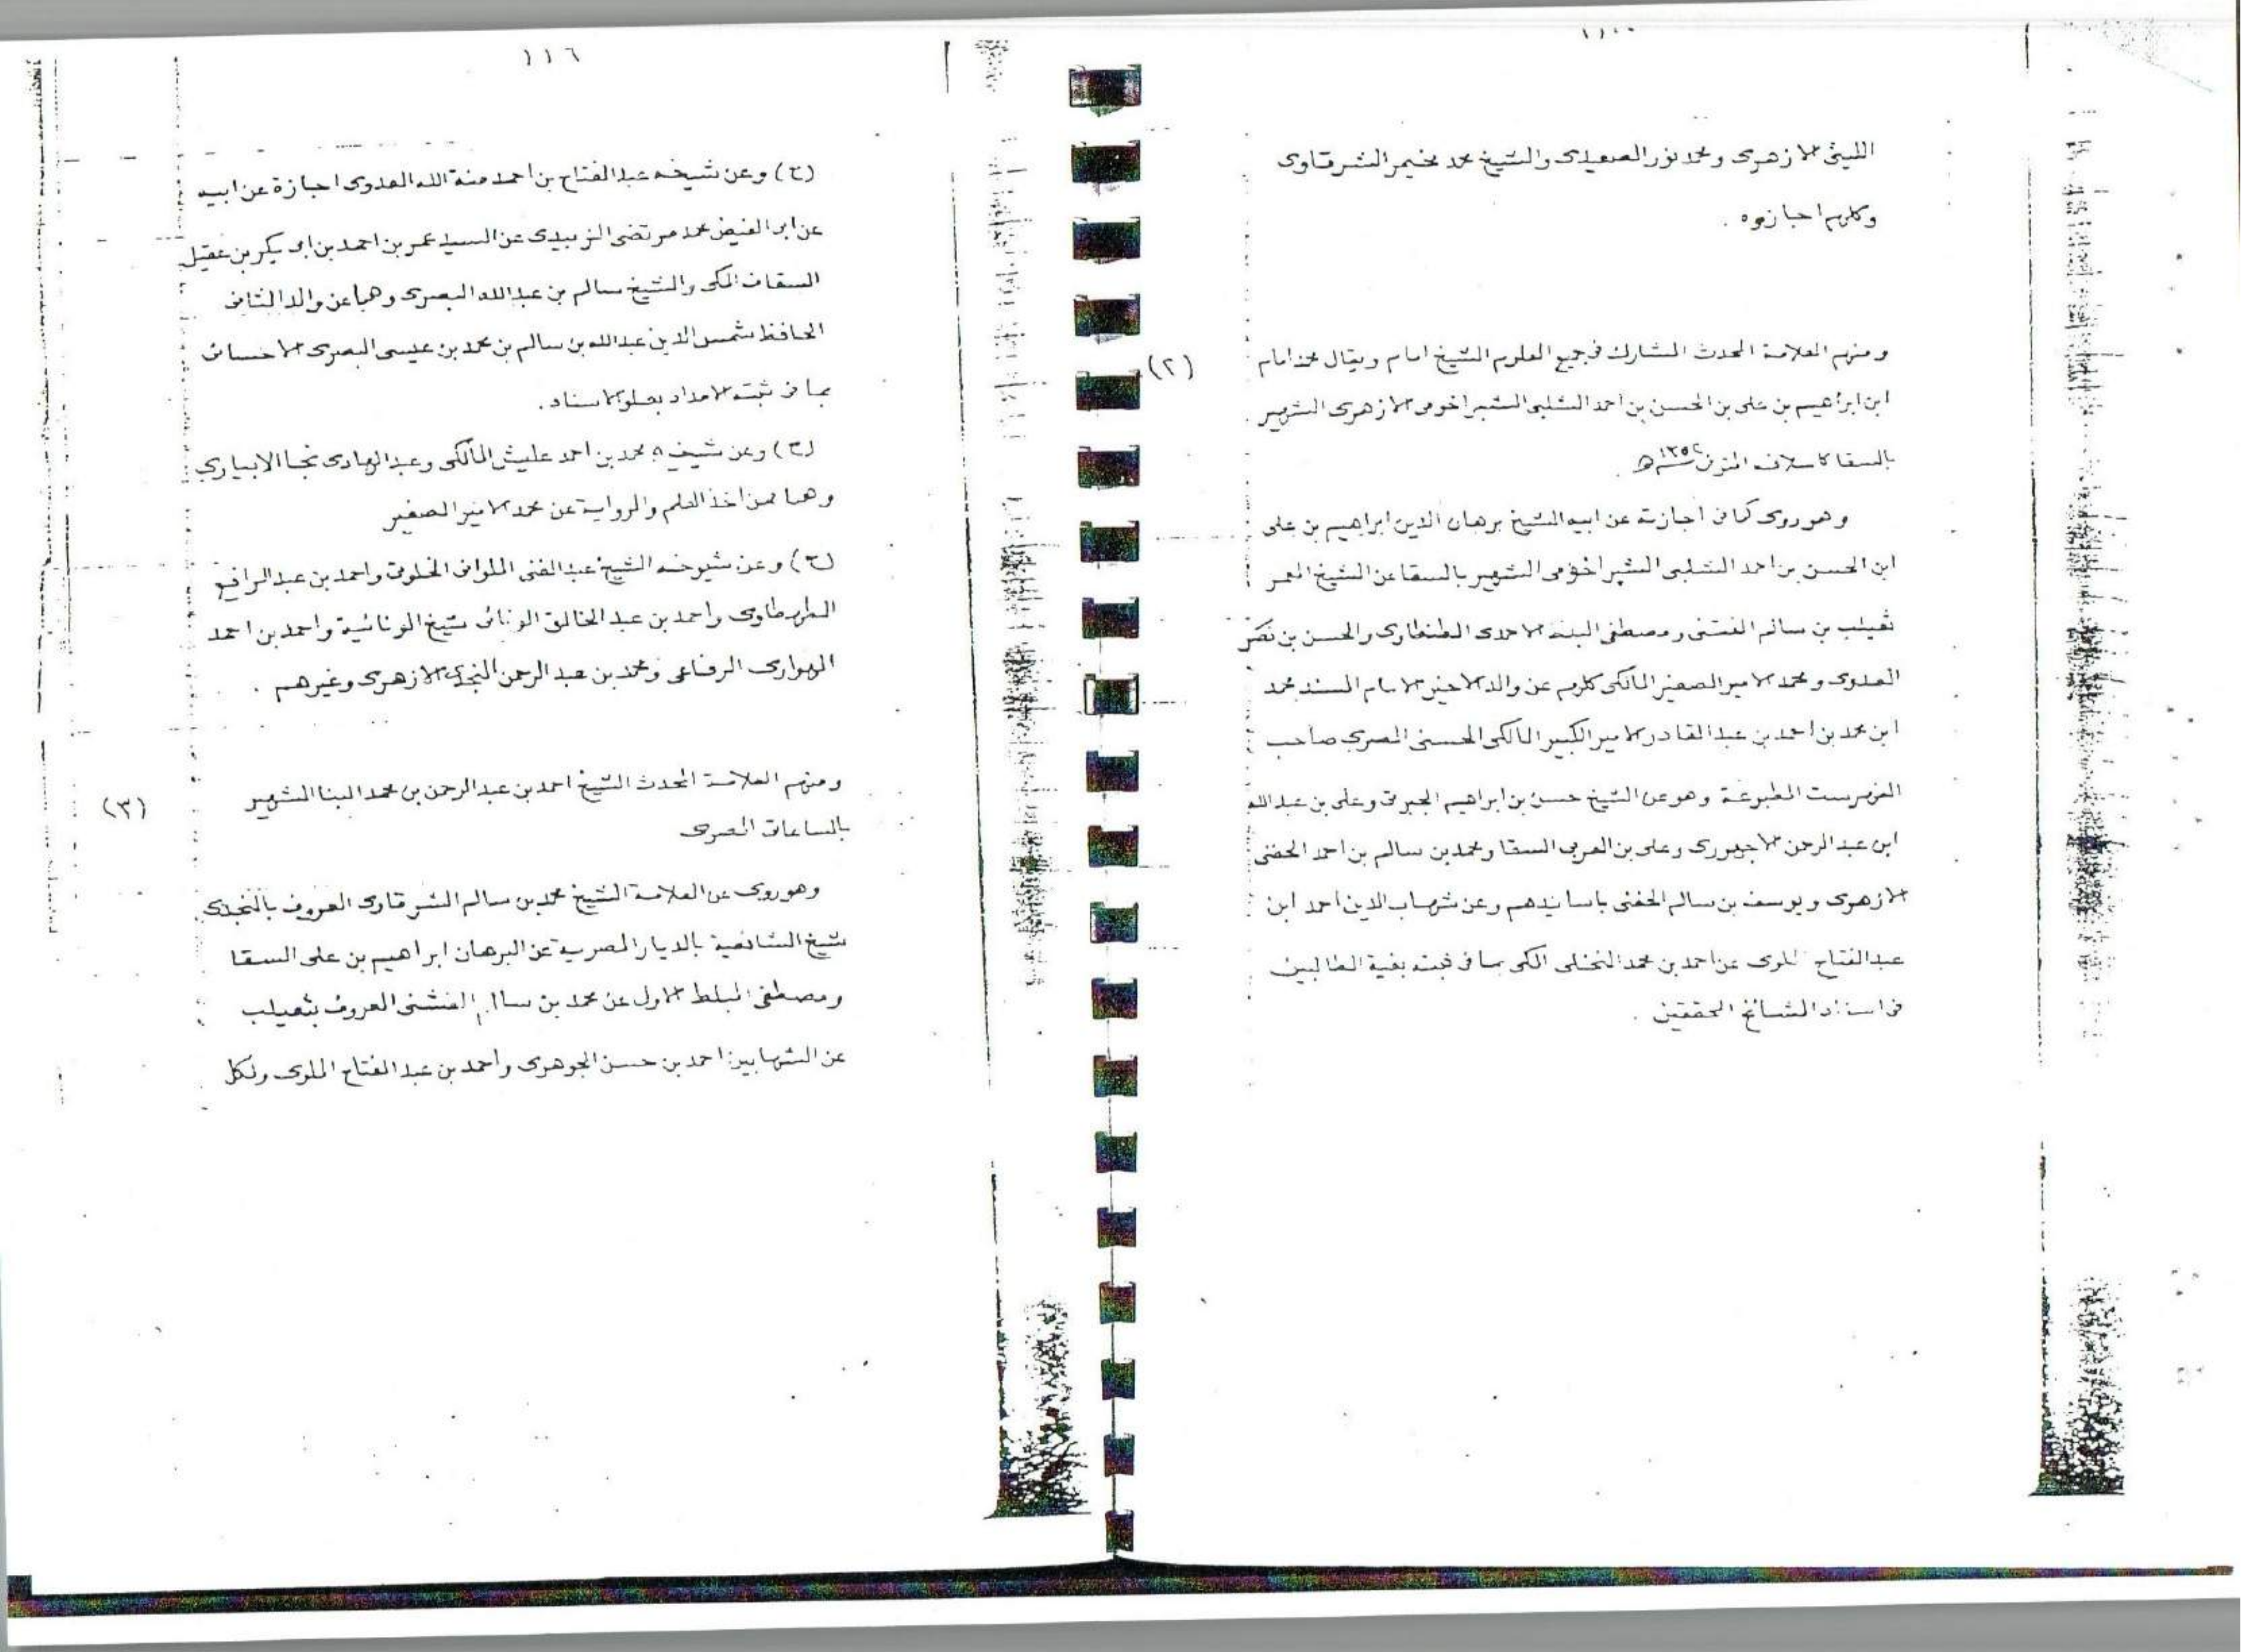 الليثى الازهرى ومحمد نور الصعيدى والشيخ محمد مخيمر الشرقاوى
وكلهم اجازوه .
ومنهم العلامة المحدث المشارك فى جميع العلوم الشيخ امام ويقال محمد امام
(٢)
ابن ابراهيم بن على بن الحسن بن احمد الشلبى الشبراخومى الازهرى الشهير
بالسقا كاسلافه المتوفى ١٣٥٤ه‍
وهو روى كما فى اجازته عن ابيه الشيخ برهان الدين ابراهيم بن على
ابن الحسن بن احمد الشلبى الشبراخومى الشهير بالسقا عن الشيخ المعمر
ثعيلب بن سالم الفشنى ومصطفى الاحمدى الطنطاوى والحسن بن
العدوى ومحمد الامير الصغير المالكى كلهم عن والد الاخير الامام المسند محمد
ابن محمد بن احمد بن عبد القادر الامير الكبير المالكى الحسنى المصرى صاحب
الفهرست المطبوعة وهو عن الشيخ حسن بن ابراهيم الجبرتى وعلى بن عبد الله
ابن عبد الرحمن الاجهورى وعلى بن العربى السقا ومحمد بن سالم بن احمد الحفنى
الازهرى ويوسف بن سالم الحفنى باسانيدهم وعن شهاب الدين احمد ابن
عبد الفتاح الملوى عن احمد بن محمد النخلى المكى بما فى ثبته بغية الطالبين
فى اسناد المشائخ المحققين .
١١٦
(ح) وعن شيخه عبد الفتاح بن احمد منة الله العدوى اجازة عن ابيه
عن ابى الفيض محمد مرتضى الزبيدى عن السيد عمر بن احمد بن ابى بكر بن عقيل
السقاف المكى والشيخ سالم بن عبد الله البصرى وهما عن والد الثانى
الحافظ شمس الدين عبد الله بن سالم بن محمد بن عيسى البصرى
بما فى ثبته الامداد بعلو الاسناد .
(ح) وعن شيخيه محمد بن احمد عليش المالكى وعبد الهادى نجا الابيارى
وهما ممن اخذ العلم والرواية عن محمد الامير الصغير
(ح) وعن شيوخه الشيخ عبد الغنى الملوانى الخلوتى واحمد بن عبد الرافع
الطهطاوى واحمد بن عبد الخالق الونائى شيخ الونائية واحمد بن احمد
الهوارى الرفاعى ومحمد بن عبد الرحمن النجدى الازهرى وغيرهم .
ومنهم العلامة المحدث الشيخ احمد بن عبد الرحمن بن محمد البنا الشهير
(٣)
بالساعاتى المصرى
وهو روى عن العلامة الشيخ محمد بن سالم الشرقاوى المعروف بالنجدى
شيخ الشافعية بالديار المصرية عن البرهان ابراهيم بن على السقا
ومصطفى المبلط الاول عن محمد بن سالم الفشنى المعروف بثعيلب
عن الشهابين احمد بن حسن الجوهرى واحمد بن عبد الفتاح الملوى ولكل